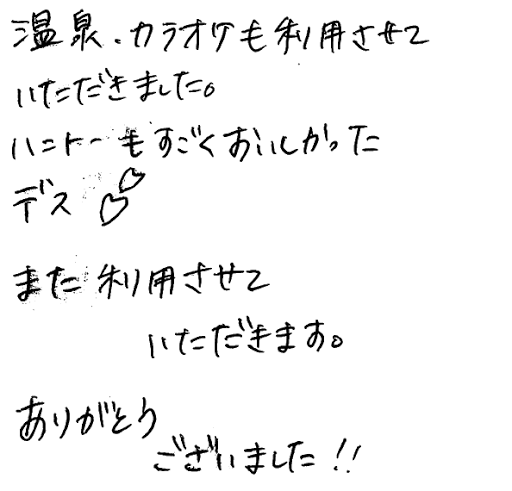 温泉・カラオケも利用させて
いただきました。
ハニトーもすごくおいしかった
デス♡♡
また利用させて
いただきます。
ありがとう
ございました!!